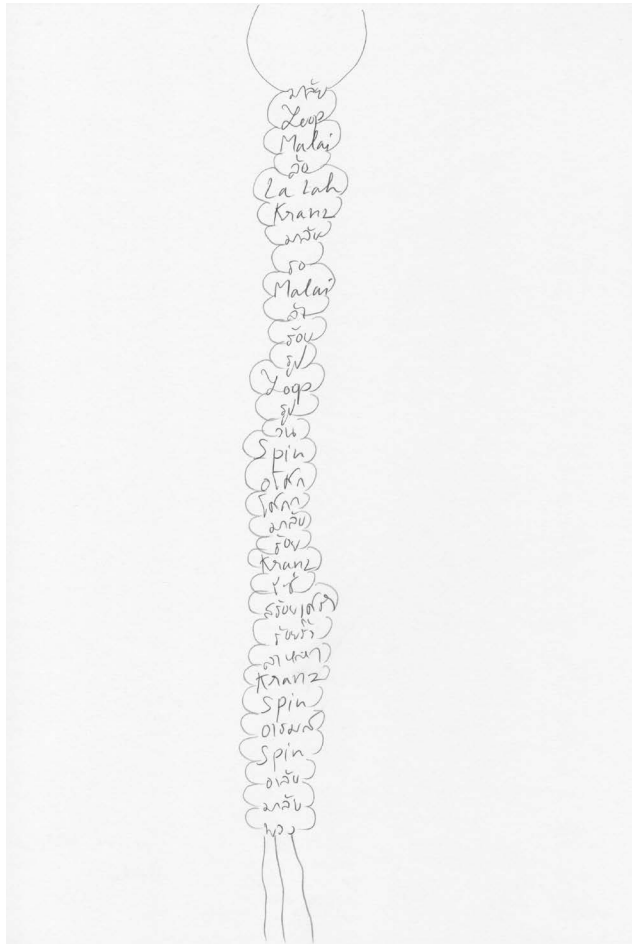 มาลัย
Loop
Malai
ลัย
La Lah
Kranz
มาลัย
รอ
Malai
ลัย
ร้อย
รูป
Loop
รูป
วน
Spin
อโศก
โศกา
มาลัย
ร้อย
Kranz
สร้อยเศร้า
ร้อยรั้ว
ลาหลา
Kranz
Spin
อารมณ์
Spin
อาลัย
มาลัย
พวง